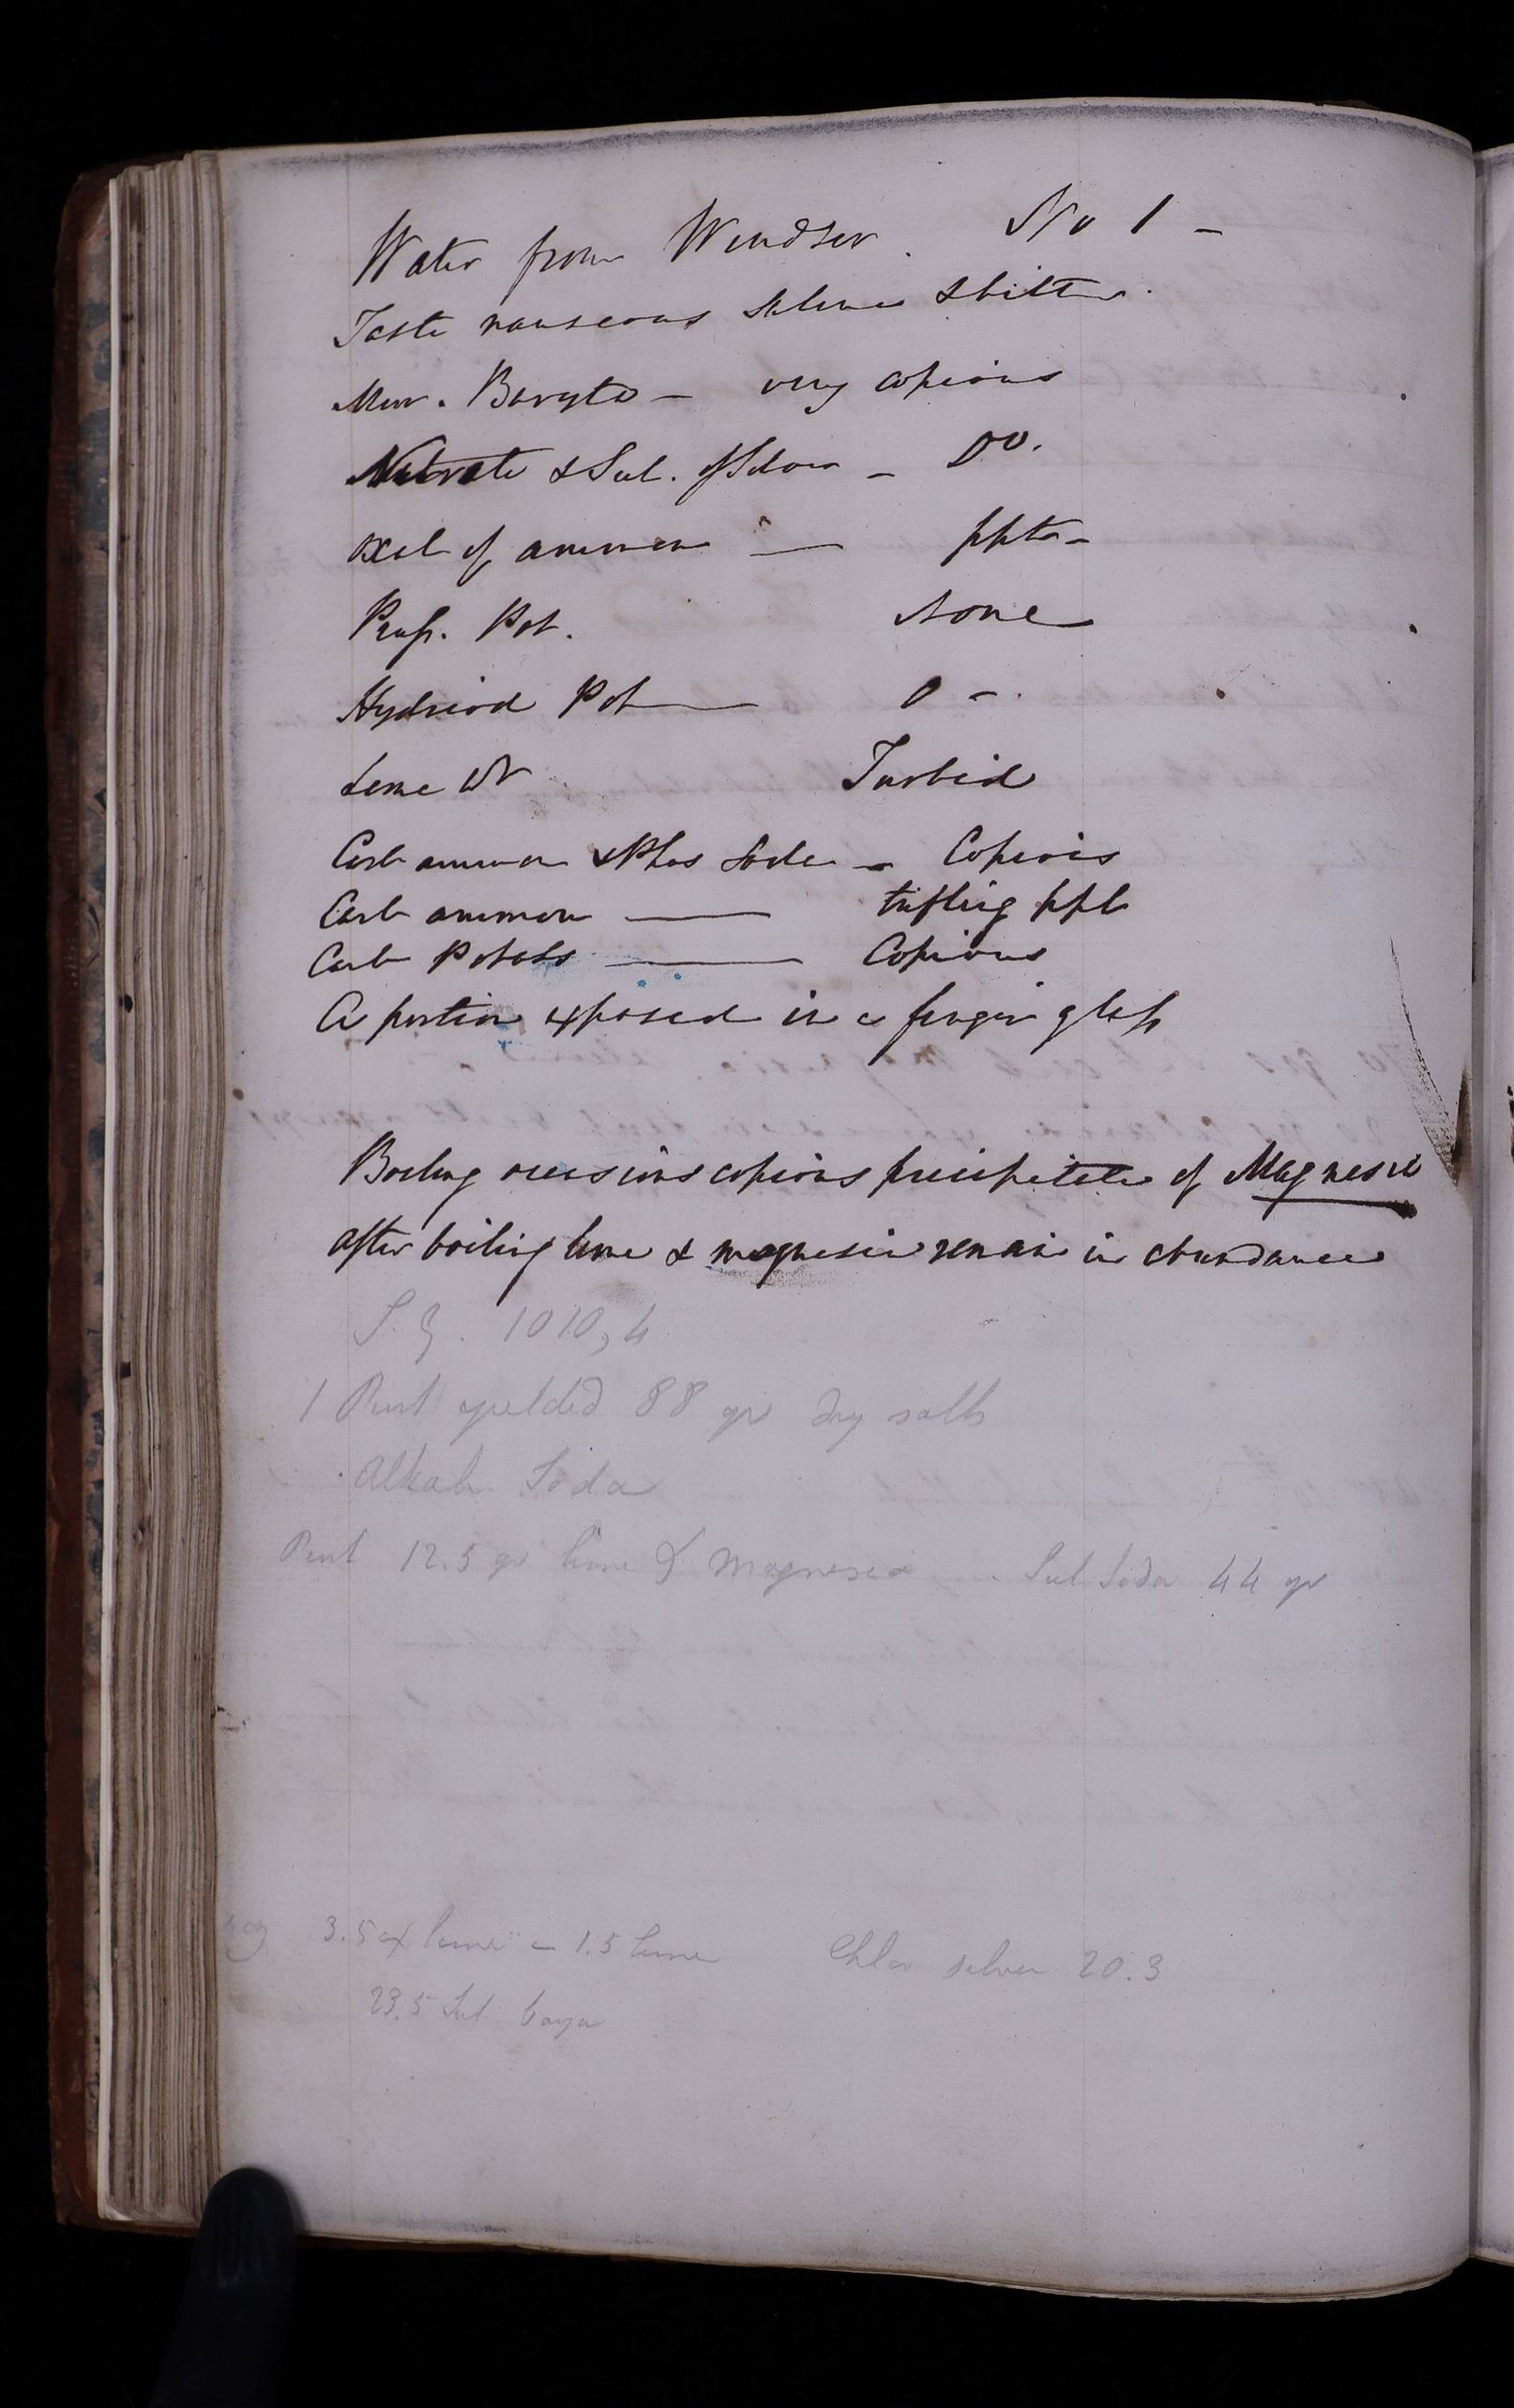 Water from Windsor. No 1 -
Taste nauseous saline & bitter.
Mur. Baryta - very copious
Nitrate & Sul. of Silver - Do.
Oxal of ammon — ppte -
Pruss. Pot. None
Hydriod Pot — 0 -.
Lime Wr Turbid
Carb ammon & Phos Soda - Copious
Carb ammon — trifling ppt
Carb Potass — Copious
A portion exposed in a finger glass
Boiling occasions copious precipitate of Magnesia
after boiling lime & magnesia remain in abundance
S.G. 1010,4
1 Pint yielded 88 gr dry salts
Alkali Soda
Pint 12.5 gr lime & Magnesia - Sul Soda 44 gr
3.5 ox lime = 1.5 lime Chlor silver 20.3
23.5 Sul barya